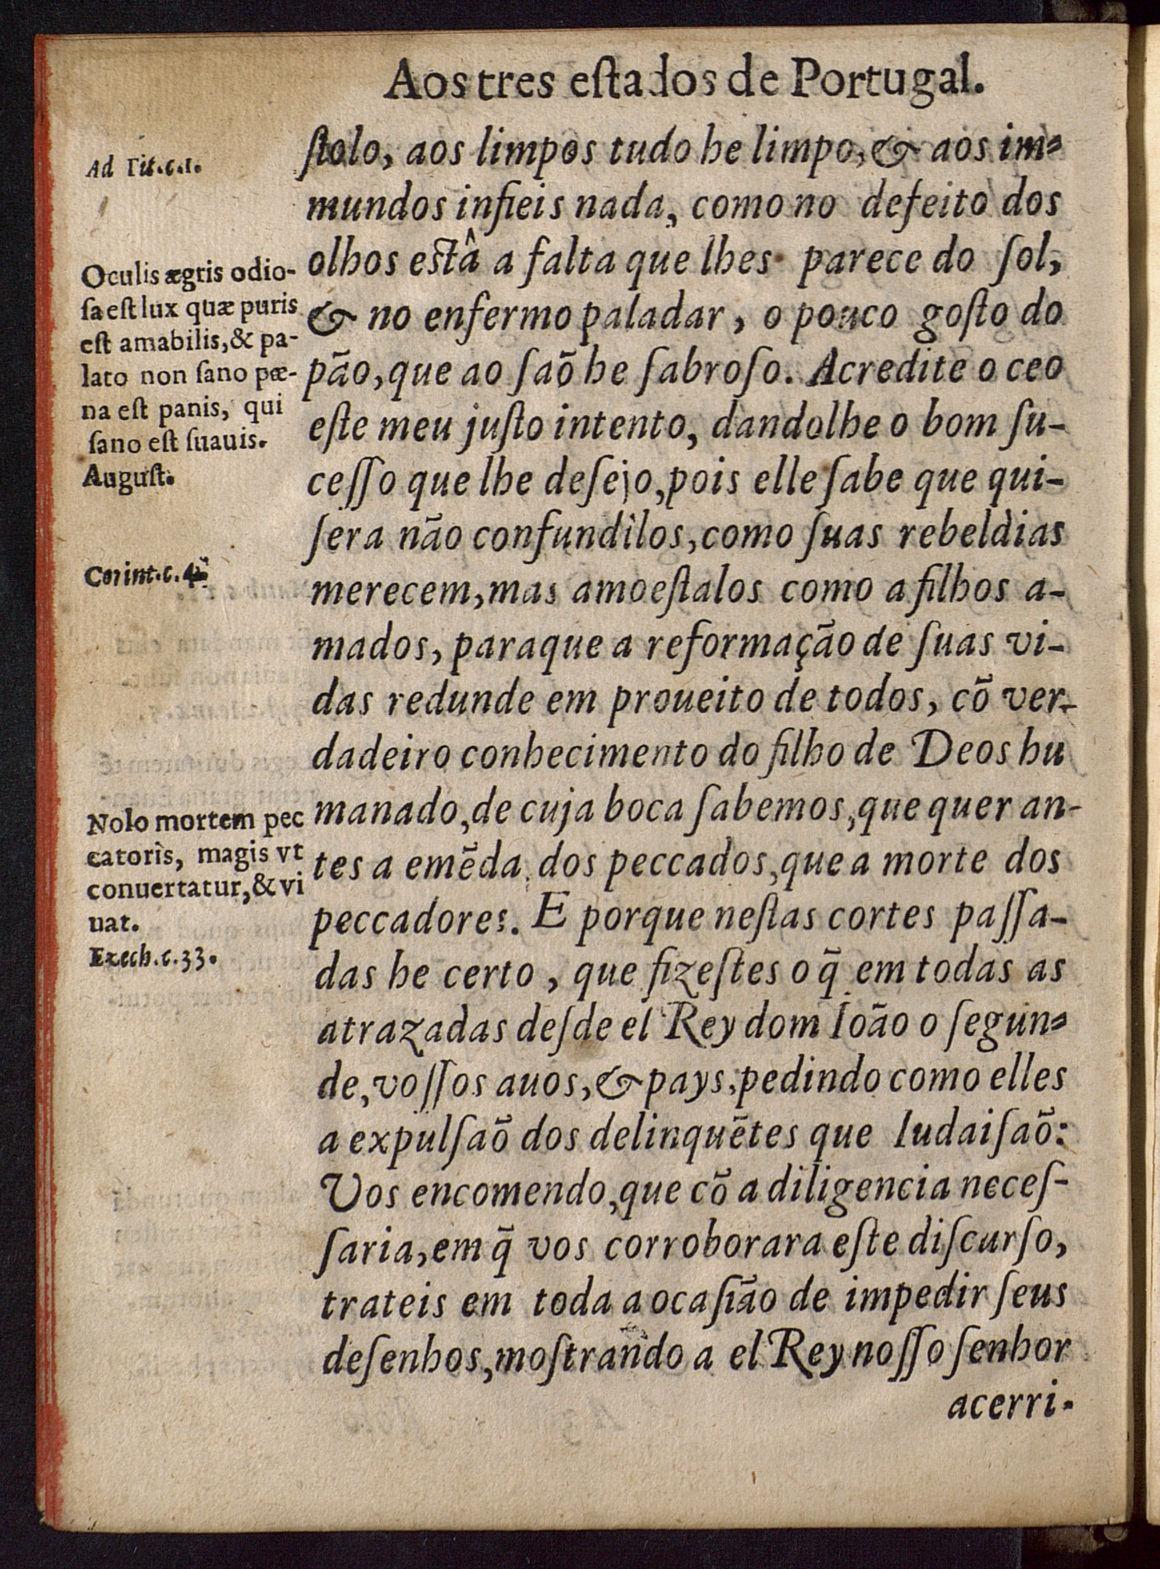 Aos tres eſtados de Portugal.
ſtolo, aos limpos tudo he limpo, & aos im-
mundos infieis nada, como no defeito dos
olhos eſtâ a falta que lhes parece do ſol,
& no enfermo paladar, o pouco goſto do
pão, que ao ſaõ he ſabroſo. Acredite o ceo
eſte meu juſto intento, dandolhe o bom ſu-
ceſſo que lhe deſejo, pois elle ſabe que qui-
ſera não confundilos, como ſuas rebeldias
merecem, mas amoeſtalos como a filhos a-
mados, paraque a reformação de ſuas vi-
das redunde em proueito de todos, cõ ver-
dadeiro conhecimento do filho de Deos hu
manado, de cuja boca ſabemos, que quer an-
tes a emẽda dos peccados, que a morte dos
peccadores. E porque neſtas cortes paſſa-
das he certo, que fizeſtes o q̃ em todas as
atrazadas deſde el Rey dom Ioão o ſegun-
de, voſſos auos, & pays, pedindo como elles
a expulſaõ dos delinquẽtes que Iudaiſaõ:
Vos encomendo, que cõ a diligencia neceſ-
ſaria, em q̃ vos corroborara eſte diſcurſo,
trateis em toda a ocaſião de impedir ſeus
deſenhos, moſtrando a el Rey noſſo ſenhor
acerri-
Ad Tit.c.1.
Oculis ægris odio-
ſa eſt lux quæ puris
eſt amabilis, & pa-
lato non ſano pœ-
na eſt panis, qui
ſano eſt ſuauis.
Auguſt.
Corint.c.4.
Nolo mortem pec
catoris, magis vt
conuertatur, & vi
uat.
Ezech.c.33.